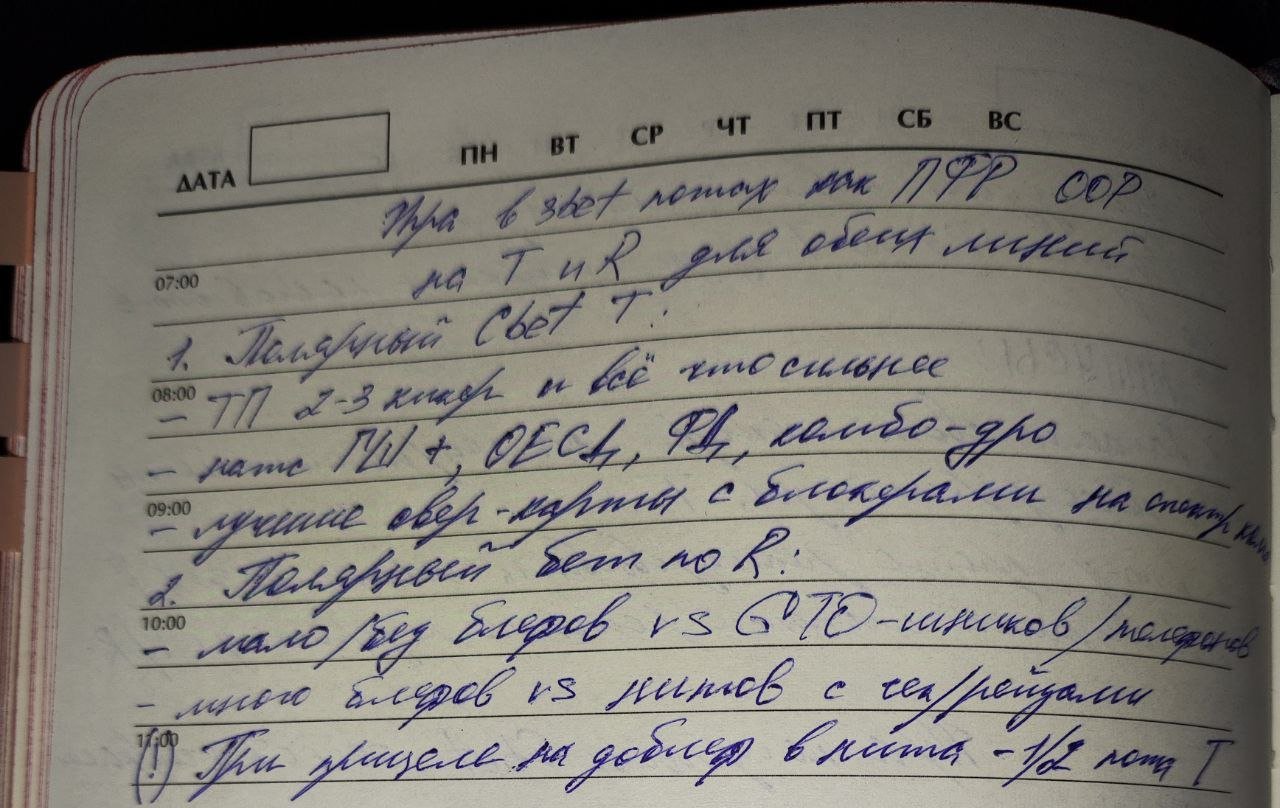 ДАТА ПН ВТ СР ЧТ ПТ СБ ВС
Игра в 3bet потах как ПФР OOP
07:00 на T и R для обеих линий
1. Полярный Cbet T:
08:00
- ТП 2-3 кикер и всё что сильнее
- натс ГШ+, ОЕСД, ФД, комбо-дро
09:00
- лучшие овер-карты с блокерами на спектр
2. Полярный бет по R:
10:00
- мало/без блефов vs GTO-шников/телефонов
- много блефов vs нитов с чек/рейзами
11:00
(!) При прицеле на доблеф в нита - 1/2 пота T